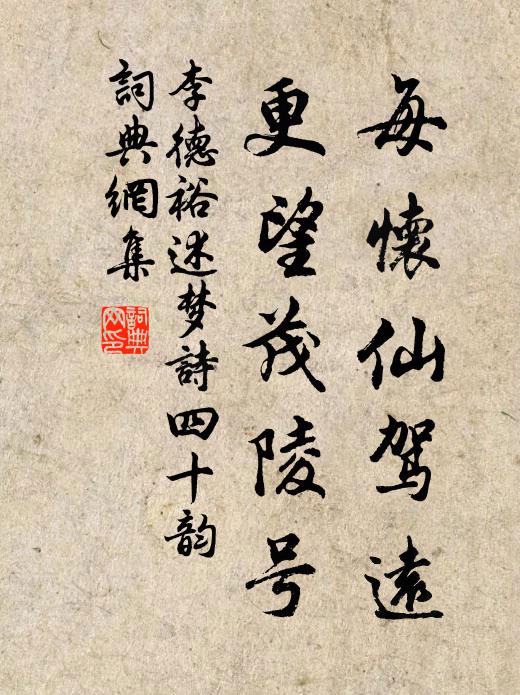 每懷仙驾遠
更望茂陵号
李德裕述梦詩四十韵
詞典網集
詞典網印